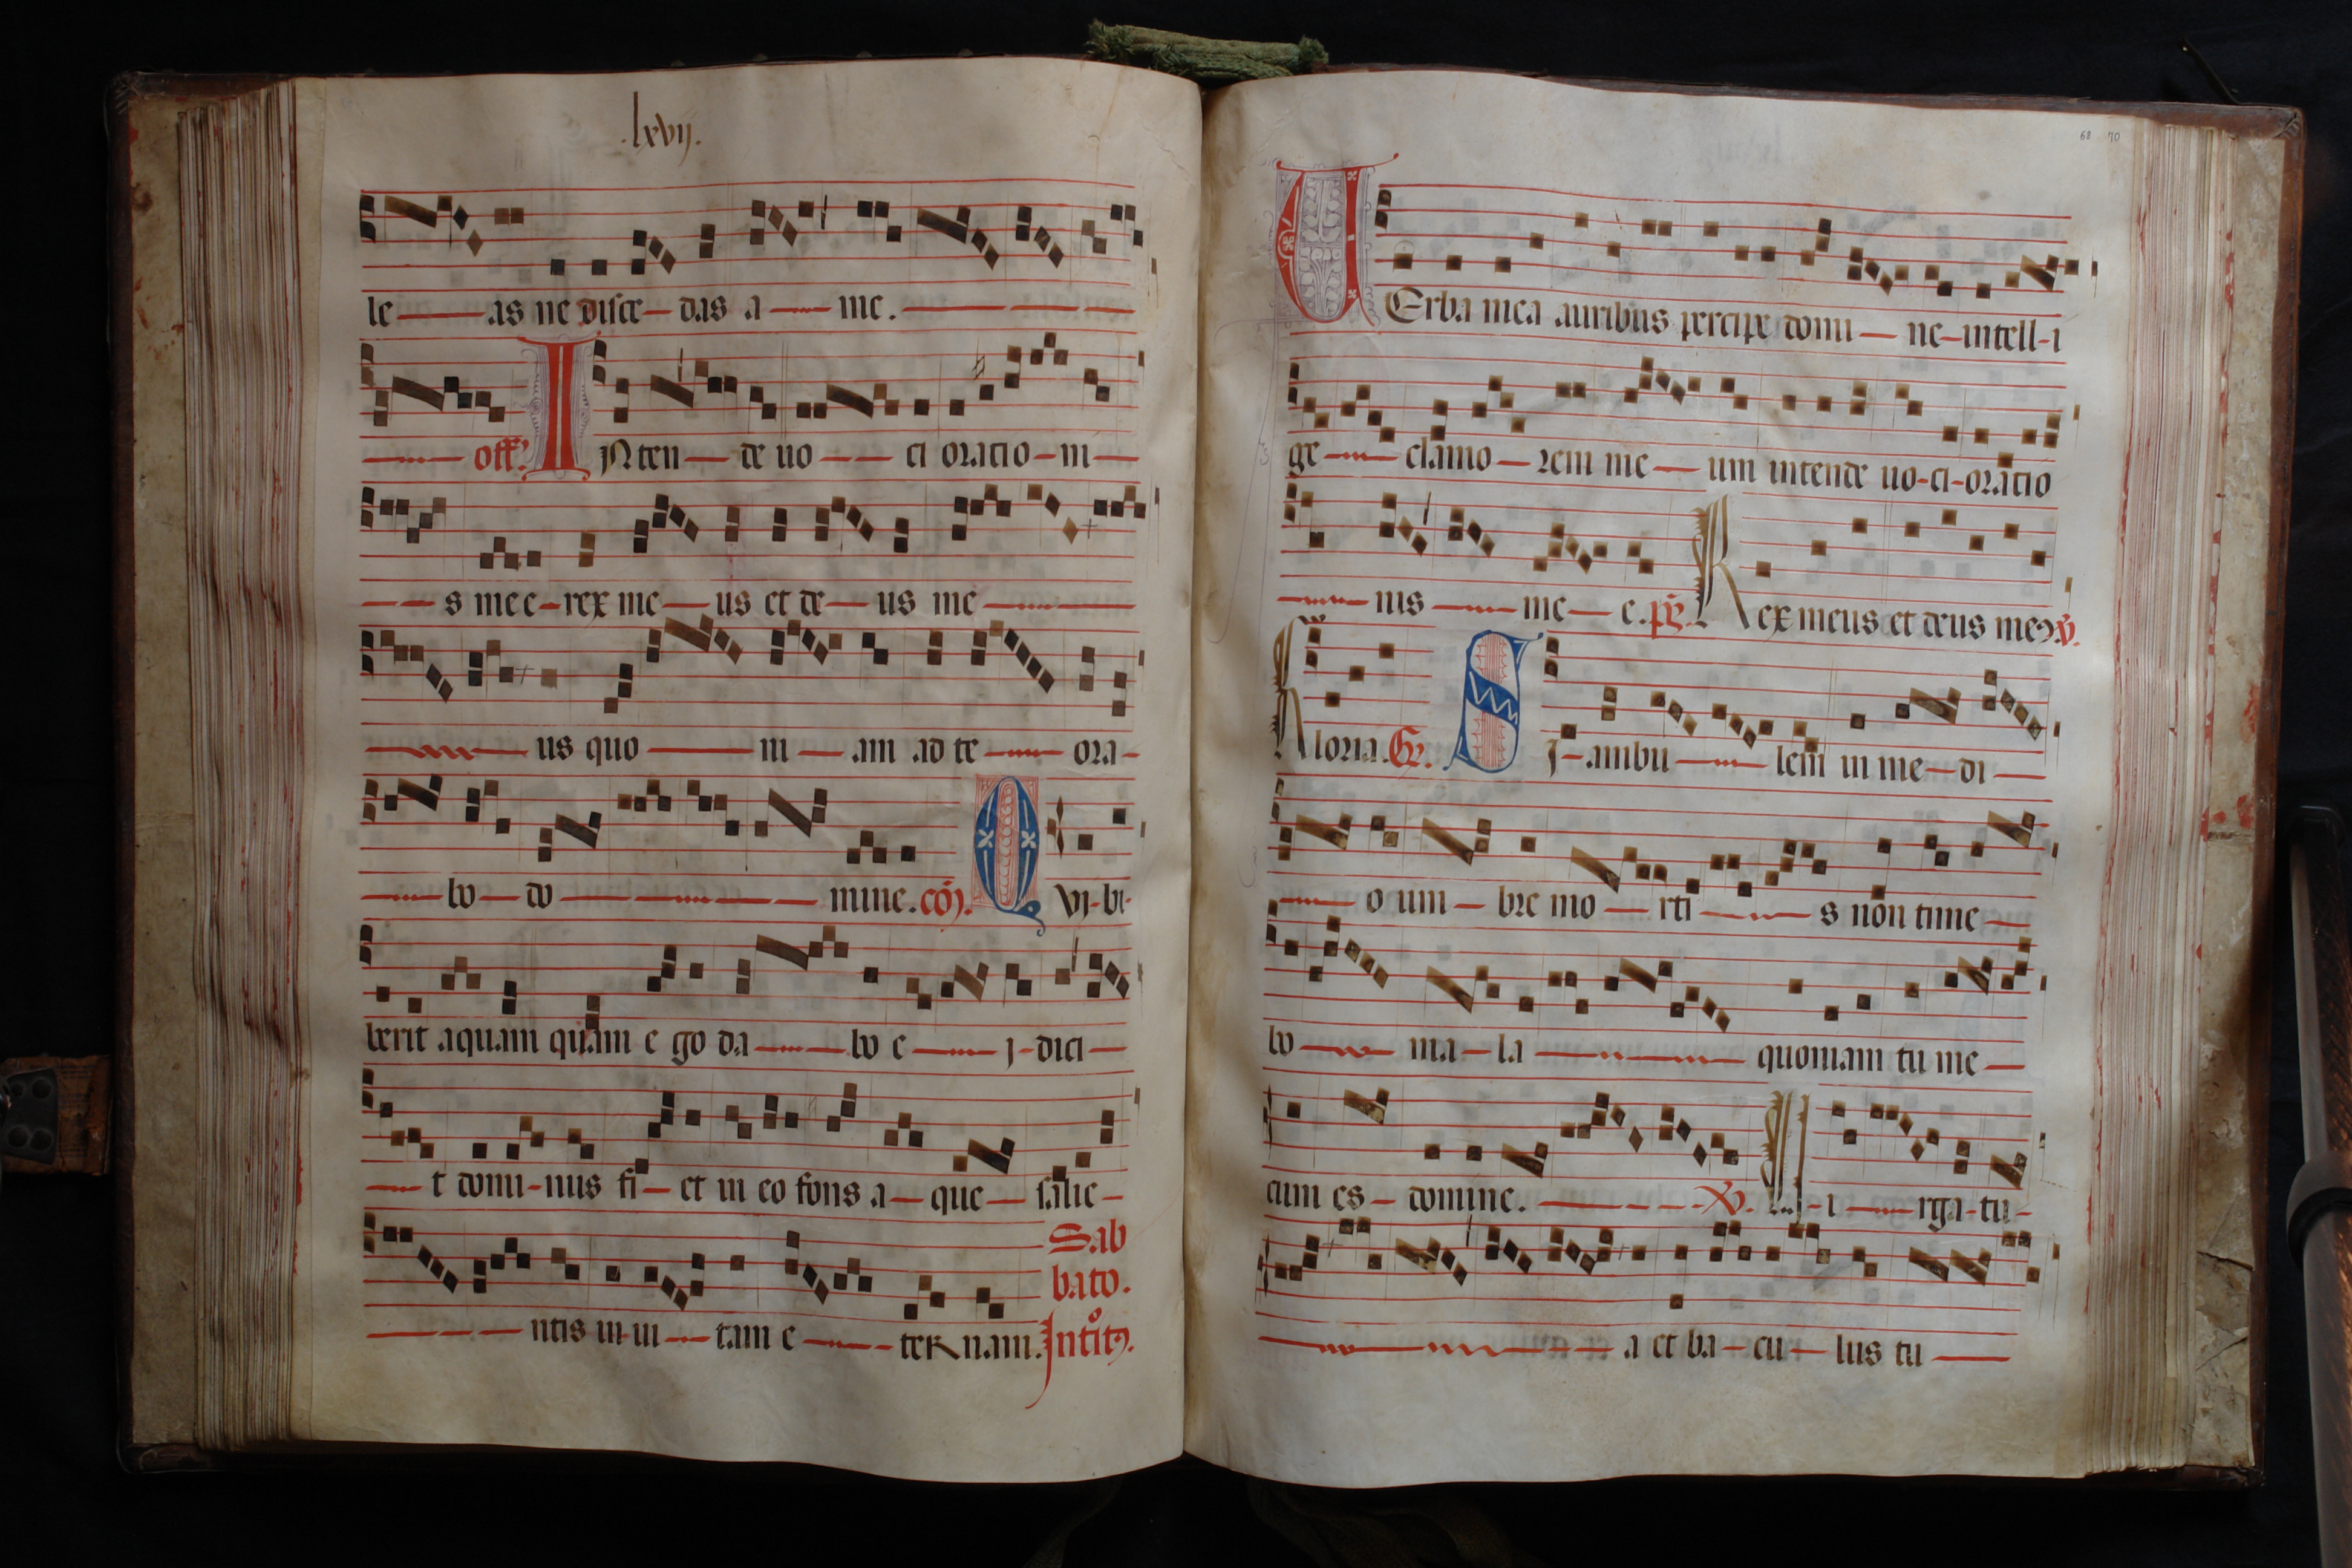 .lxvij.
le as ne disce das a me.
off. INten de uo ci oratio ni
s mee rex me us et de us me
us quo ni am ad te ora
bo do mine. cõ. QVi bi
berit aquam quam e go da bo e j dici
t domi nus fi et in eo fons a que salie
Sab
bato.
ntis in ui tam e ter nam. Intitꝰ.
68 70
UErba mea auribus percipe domi ne intell i
ge clamo rem me um intende uo ci oratio
nis me e. ps. Rex meus et deus meꝰ. ꝟ.
Gloria. Gr. SI ambu lem in me di
o um bre mo rti s non time
bo ma la quoniam tu me
cum es domine. ꝟ. Vi rga tu
a et ba cu lus tu